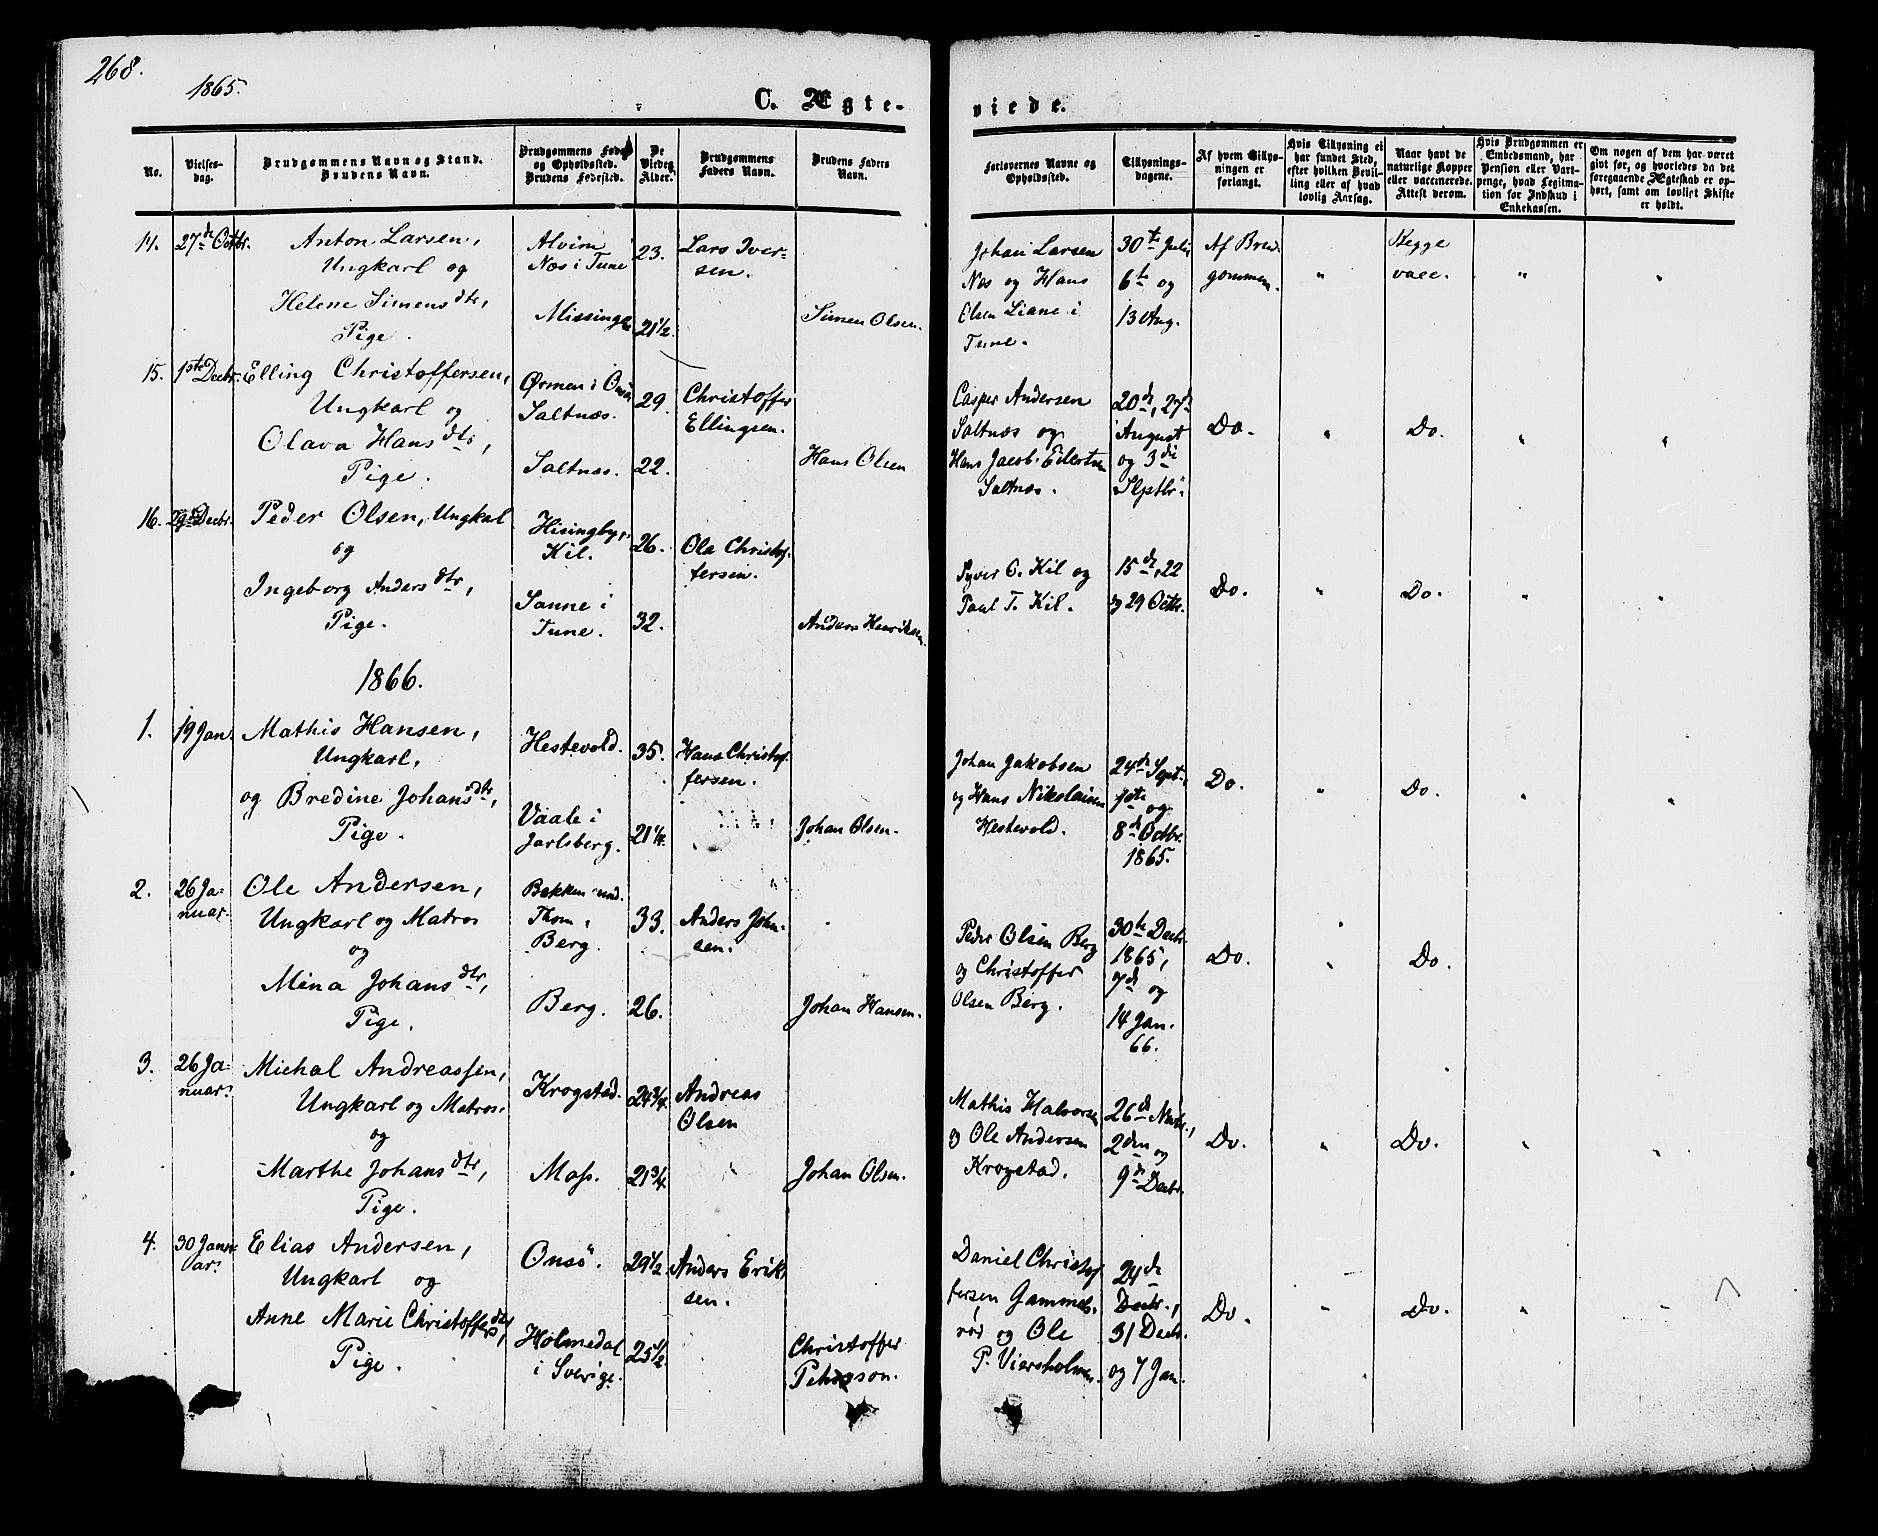 268.
1865.
C. Ægte-
viede.
No.
Vielses-
dag.
Brudgommens Navn og Stand.
Brudens Navn.
Brudgommens Føde-
og Opholdssted.
Brudens Fødested.
De
Viedes
Alder.
Brudgommens
Faders Navn.
Brudens Faders
Navn.
Forlovernes Navne og
Opholdssted.
Tillysnings-
dagene.
Af hvem Tillys-
ningen er
forlangt.
Hvis Tillysning ei
har fundet Sted,
efter hvilken Bevil-
ling eller af hvad
lovlig Aarsag.
Naar havt de
naturlige Kopper
eller vaccinerede.
Attest derom.
Hvis Brudgommen er
Embedsmand, har
Pension eller Vart-
penge, hvad Legitima-
tion for Indskud i
Enkekassen.
Om nogen af dem har været
gift før, og hvorledes da det
foregaaende Ægteskab er op-
hørt, samt om lovligt Skifte
er holdt.
14.
27de Octbr.
Anton Larsen,
Ungkarl og
Helene Simensdtr,
Pige.
Alvim
Næs i Tune
Missinge
23.
21½.
Lars Iver-
sen.
Simen Olsen.
Johan Larsen
Næs og Hans
Olsen Liane i
Tune.
30te Juli
6te og
13 Aug.
Af Brud-
gommen.
"
Begge
vacc.
"
"
15.
1ste Decbr.
Elling Christoffersen,
Ungkarl og
Olava Hansdtr,
Pige.
Ørmen i Onsø
Saltnæs.
Saltnæs.
29.
22.
Christoffer
Ellingsen.
Hans Olsen
Casper Andersen
Saltnæs og
Hans Jacob Eilertsen
Saltnæs.
20de, 27de
August
og 3die
Septbr.
Do.
"
Do.
"
"
16.
29de Decbr.
Peder Olsen, Ungkarl
og
Ingeborg Andersdtr,
Pige.
Hisingby,
Kil.
Sanne i
Tune.
26.
32.
Ole Christof-
fersen.
Anders Henriksen.
Syver O. Kil og
Paul T. Kil.
15de, 22
og 29 Octbr.
Do.
"
Do.
"
"
1866.
1.
19 Jan.
Mathis Hansen,
Ungkarl,
og Bredine Johansdtr,
Pige.
Hestevold.
Vaale i
Jarlsberg.
35.
21¼.
Hans Christof-
fersen.
Johan Olsen.
Johan Jakobsen
og Hans Nikolaisen
Hestevold.
24de Sept.,
1ste og
8de Octbr.
1865.
Do.
"
Do.
"
"
2.
26 Ja-
nuar.
Ole Andersen,
Ungkarl og Matros
og
Mina Johansdtr,
Pige.
Bakken und.
Thom,
Berg.
Berg.
33.
26.
Anders John-
sen.
Johan Hansen.
Peder Olsen Berg
og Christoffer
Olsen Berg.
30te Decbr.
1865,
7de og
14 Jan.
66.
Do.
"
Do.
3.
26 Ja-
nuar.
Michal Andreassen,
Ungkarl og Matros.
og
Marthe Johansdtr,
Pige.
Krogstad.
Moss.
24¾.
21¾.
Andreas
Olsen
Johan Olsen.
Mathis Halvorsen
og Ole Andersen
Krogstad.
26de Novbr.,
2den og
9de Decbr.
Do.
"
Do.
"
"
4.
30 Janu-
ar.
Elias Andersen,
Ungkarl og
Anne Marie Christoffersdtr,
Pige.
Onsö.
Holmedal
i Sverige.
29½.
25½.
Anders Erik-
sen.
Christoffer
Daniel Christof-
fersen Gammel-
rød og Ole
P. Viersholmen.
24de
Decbr.,
31 Decbr.
og 7 Jan.
Do.
"
Do.
"
"